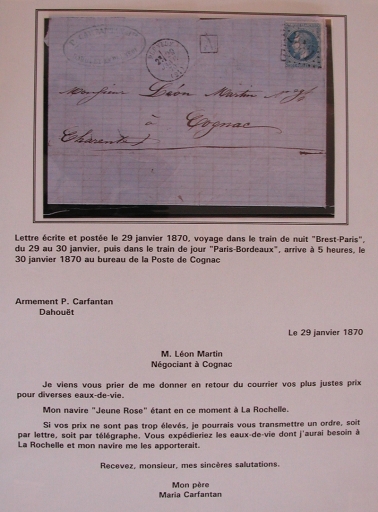 A
Monsieur Léon Martin
à
Cognac
Charente
Lettre écrite et postée le 29 janvier 1870, voyage dans le train de nuit "Brest-Paris",
du 29 au 30 janvier, puis dans le train de jour "Paris-Bordeaux", arrive à 5 heures, le
30 janvier 1870 au bureau de la Poste de Cognac
Armement P. Carfantan
Dahouët
Le 29 janvier 1870
M. Léon Martin
Négociant à Cognac
Je viens vous prier de me donner en retour du courrier vos plus justes prix
pour diverses eaux-de-vie.
Mon navire "Jeune Rose" étant en ce moment à La Rochelle.
Si vos prix ne sont pas trop élevés, je pourrais vous transmettre un ordre, soit
par lettre, soit par télégraphe. Vous expédieriez les eaux-de-vie dont j'aurai besoin à
La Rochelle et mon navire me les apporterait.
Recevez, monsieur, mes sincères salutations.
Mon père
Maria Carfantan